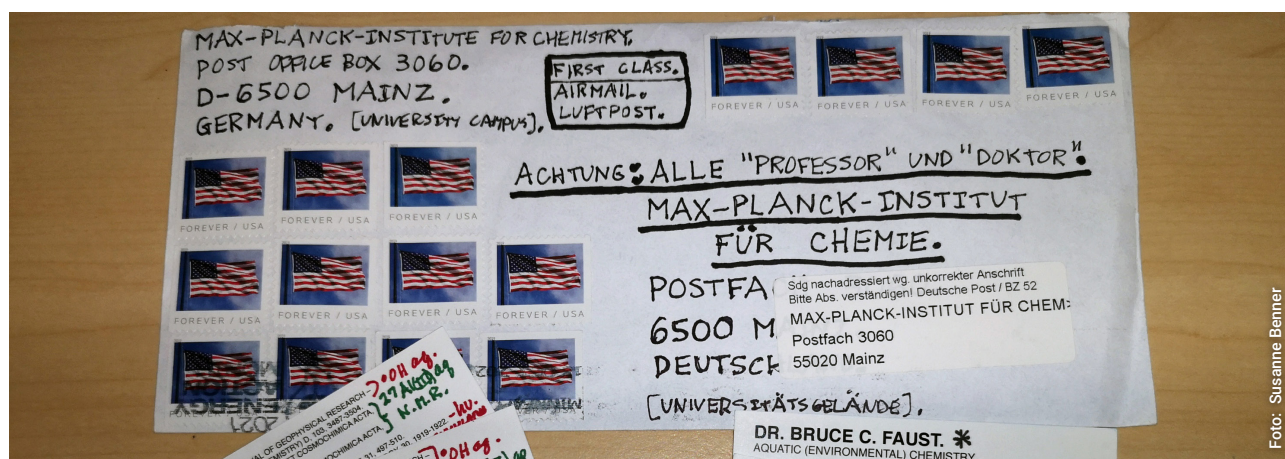 MAX-PLANCK-INSTITUTE FOR CHEMISTRY.
POST OFFICE BOX 3060.
D-6500 MAINZ.
GERMANY. [UNIVERSITY CAMPUS].
FIRST CLASS.
AIRMAIL.
LUFTPOST.
FOREVER / USA
FOREVER / USA
FOREVER / USA
FOREVER / USA
FOREVER / USA
FOREVER / USA
FOREVER / USA
FOREVER / USA
FOREVER / USA
FOREVER / USA
FOREVER / USA
ACHTUNG: ALLE "PROFESSOR" UND "DOKTOR".
MAX-PLANCK-INSTITUT
FÜR CHEMIE.
POSTFA
6500 M
DEUTSCH
[UNIVERSITÄTSGELÄNDE].
Sdg nachadressiert wg. unkorrekter Anschrift
Bitte Abs. verständigen! Deutsche Post / BZ 52
MAX-PLANCK-INSTITUT FÜR CHEM
Postfach 3060
55020 Mainz
2021
ENERGY
OF GEOPHYSICAL RESEARCH
D, 103, 3487-3504
COSMOCHIMICA ACTA
•OH aq.
N.M.R.
COSMOCHIMICA ACTA
31, 497-510.
30, 1919-1922
hν.
•OH aq.
DR. BRUCE C. FAUST. *
AQUATIC (ENVIRONMENTAL) CHEMISTRY
Foto: Susanne Benner